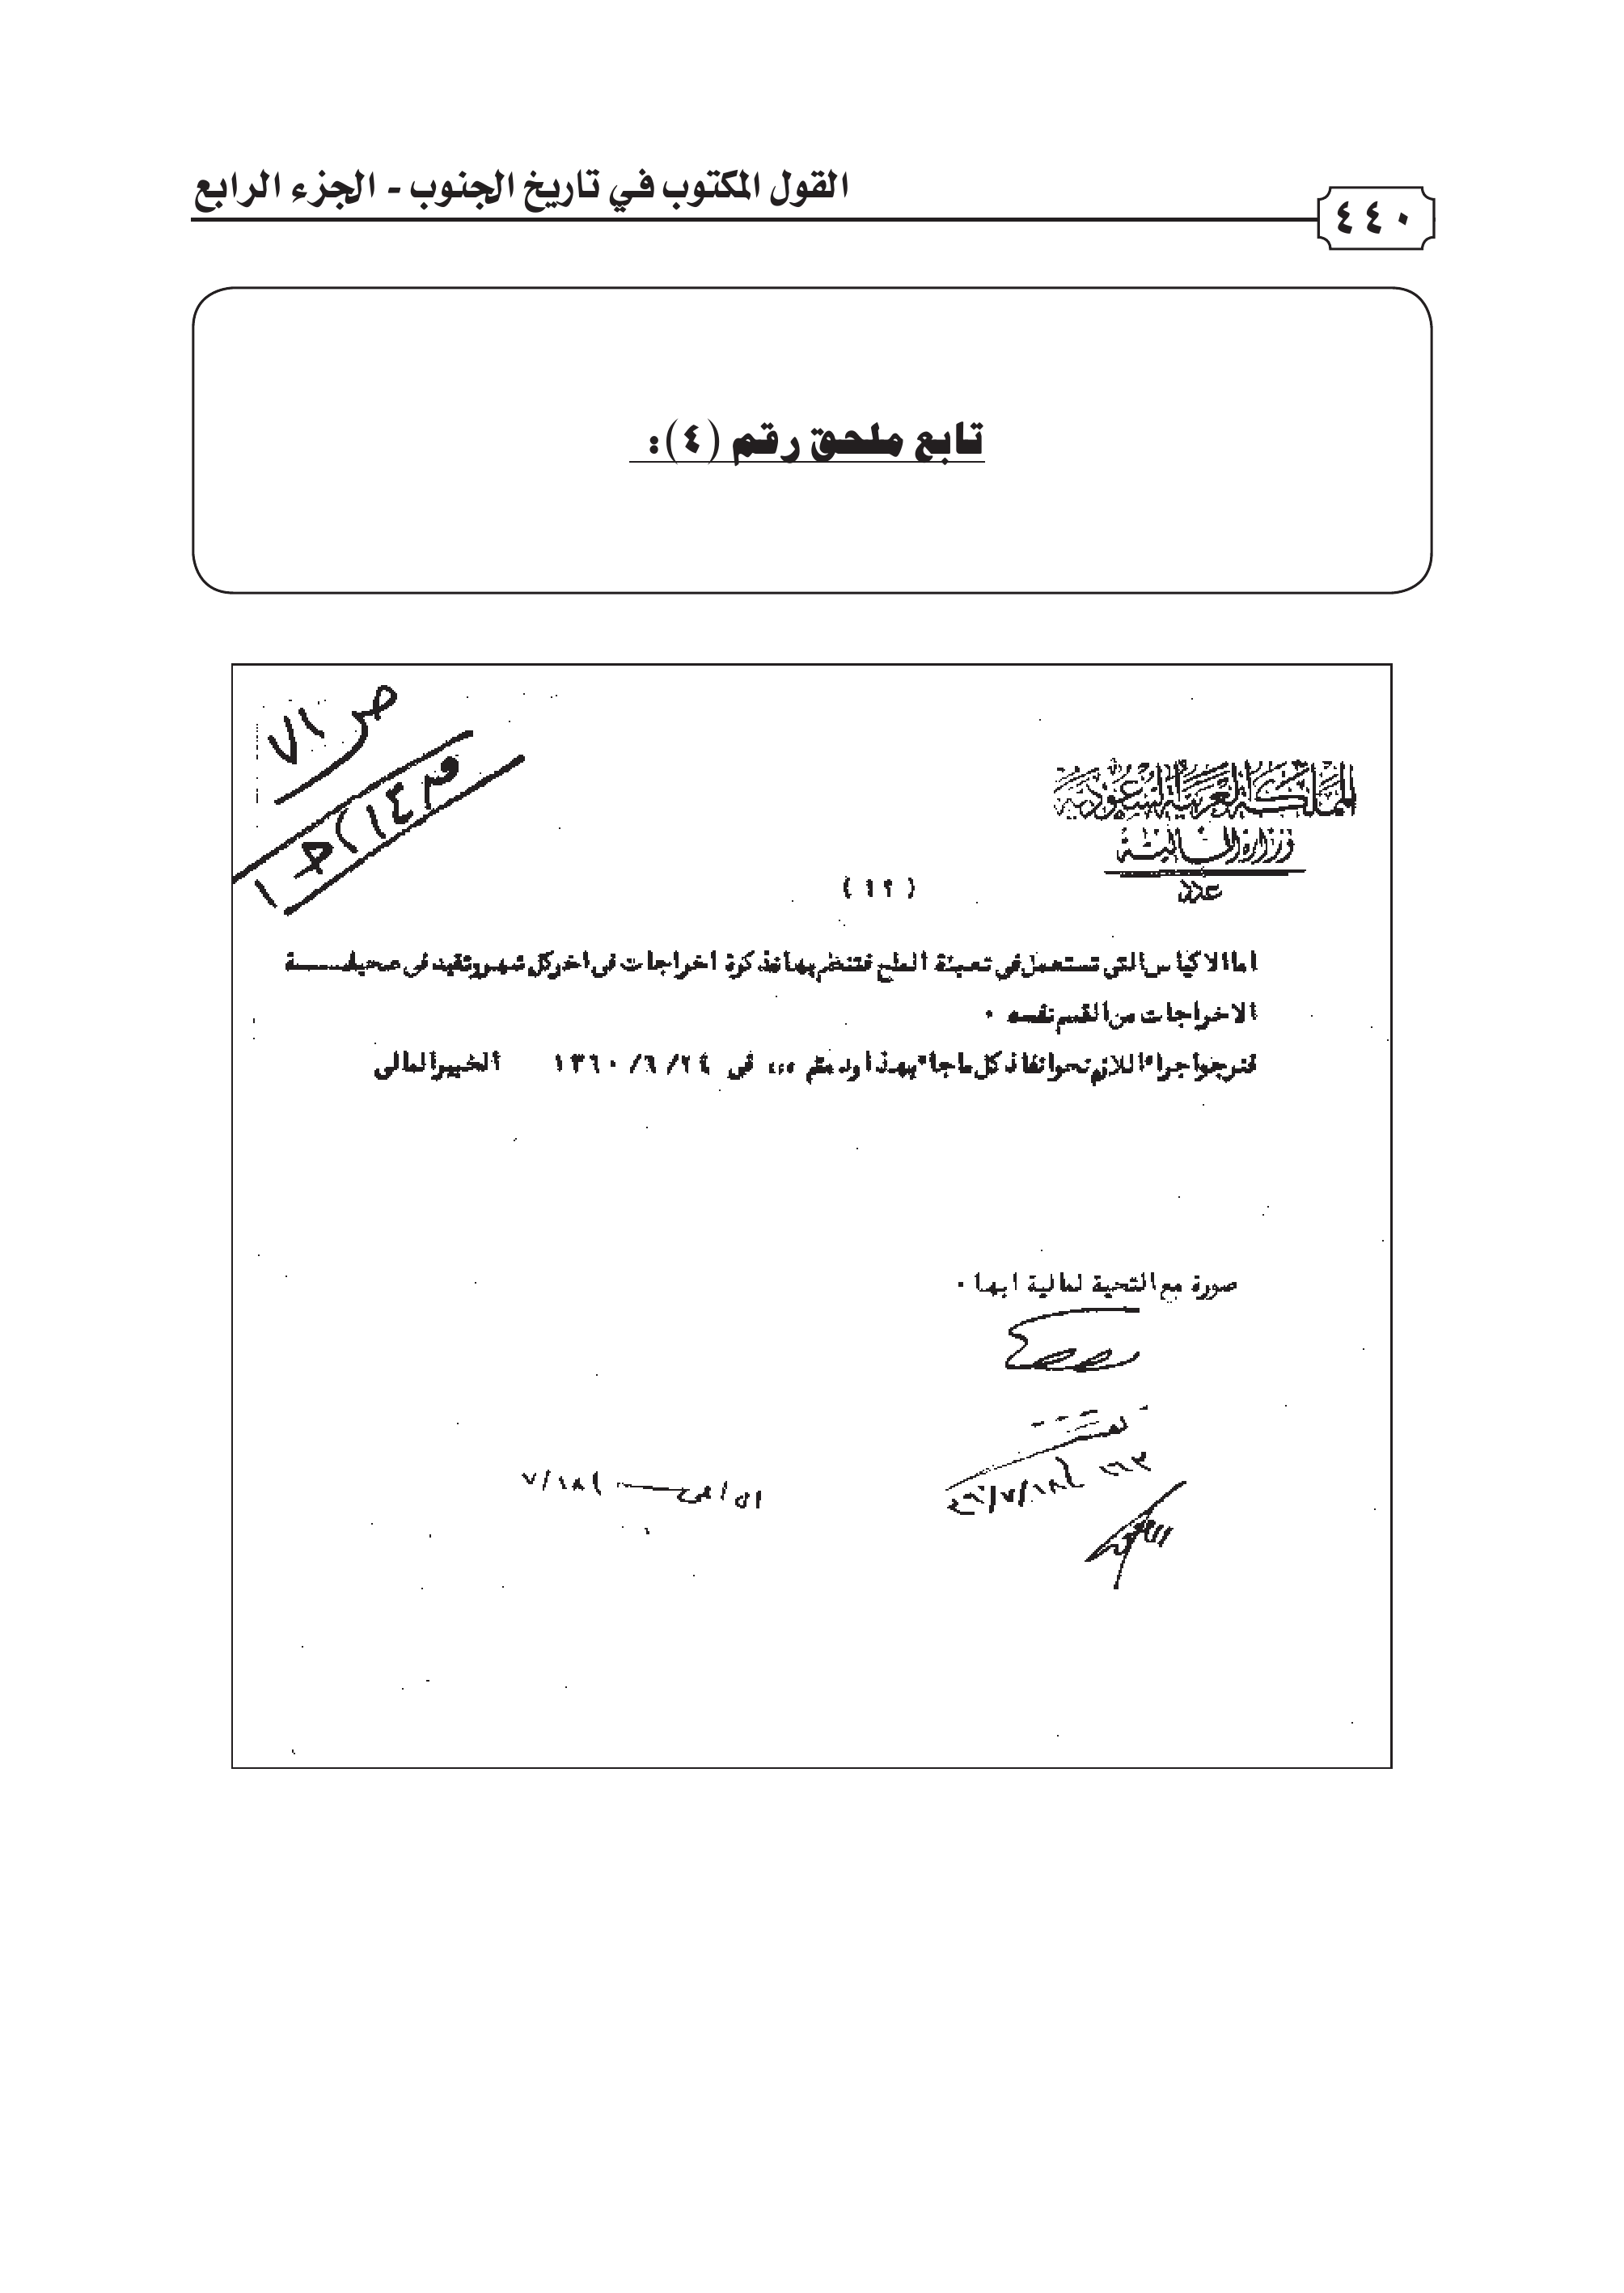 القول المكتوب في تاريخ الجنوب - الجزء الرابع
٤٤٠
تابع ملحق رقم (٤):
ص ٧١
المملكة العربية السعودية
وزارة المالية
عدد
(١٢)
اما الاكياس التى تستعمل في تعبئة الملح فتنظم بها تذكرة اخراجات فى اخر كل شهر وتقيد فى صحيفـــــة
الاخراجات من القسم نفسه ٠
فنرجو اجراء اللازم نحو انفاذ كل ماجاء بهذا ودمتم ،،، في ٢٤/ ٦/ ١٣٦٠ الخبير المالى
صورة مع التحية لمالية ابها ٠
٧/١٨